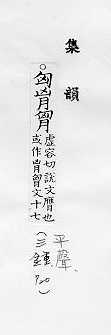 集韻
○匈胷虛容切說文膺也
或作胷文十七
(平聲
三鍾